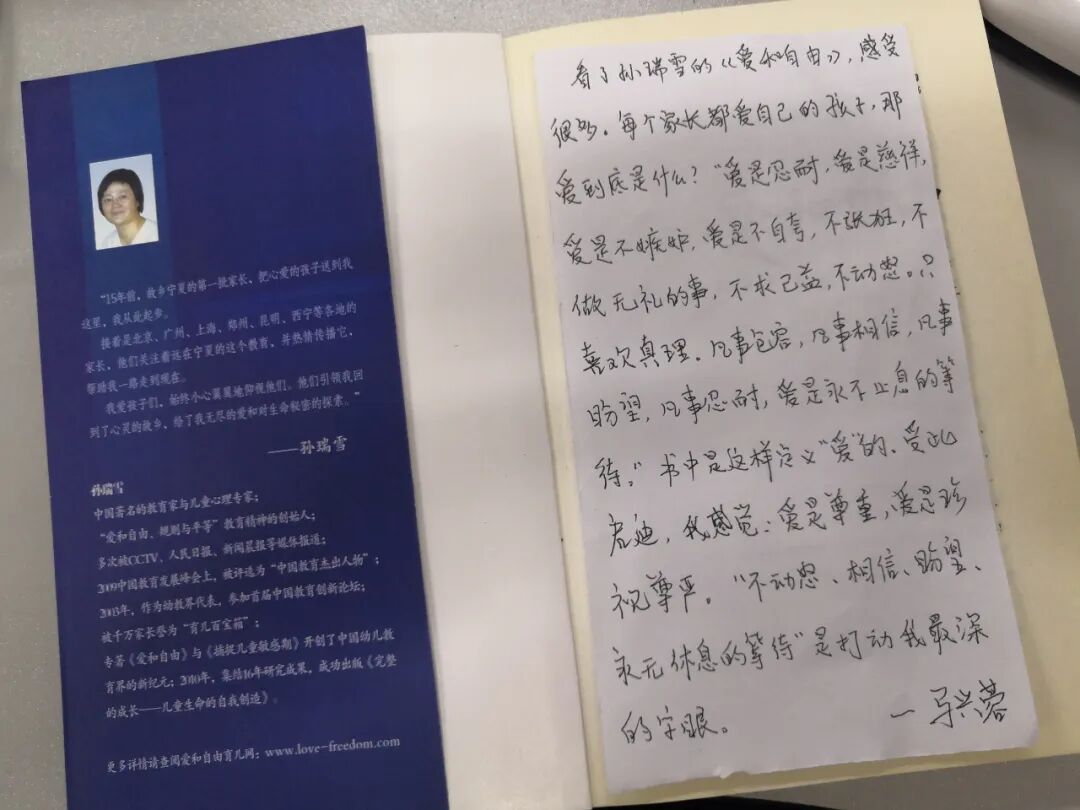 “15年前，故乡宁夏的第一批家长，把心爱的孩子送到我
这里，我从此起步。
接着是北京、广州、上海、郑州、昆明、西宁等各地的
家长，他们关注着远在宁夏的这个教育，并热情传播它，
帮助我一路走到现在。
我爱孩子们，始终小心翼翼地仰视他们。他们引领我回
到了心灵的故乡，给了我无尽的爱和对生命秘密的探索。”
——孙瑞雪
孙瑞雪
中国著名的教育家与儿童心理专家；
“爱和自由、规则与平等”教育精神的创始人；
多次被CCTV、人民日报、新闻晨报等媒体报道；
2009中国教育发展峰会上，被评选为“中国教育杰出人物”；
2003年，作为幼教界代表，参加首届中国教育创新论坛；
被千万家长誉为“育儿百宝箱”；
专著《爱和自由》与《捕捉儿童敏感期》开创了中国幼儿教
育界的新纪元；2010年，集结16年研究成果，成功出版《完整
的成长——儿童生命的自我创造》。
更多详情请查阅爱和自由育儿网：www.love-freedom.com
看了孙瑞雪的《爱和自由》，感受
很多。每个家长都爱自己的孩子，那
爱到底是什么？“爱是忍耐，爱是慈祥，
爱是不嫉妒，爱是不自夸，不张狂，不
做无礼的事，不求己益，不动怒。只
喜欢真理。凡事包容，凡事相信，凡事
盼望，凡事忍耐，爱是永不止息的等
待。”书中是这样定义“爱”的、受此
启迪，我感觉：爱是尊重，爱是珍
视尊严。“不动怒、相信、盼望、
永无休息的等待”是打动我最深
的字眼。
—马兴蓉